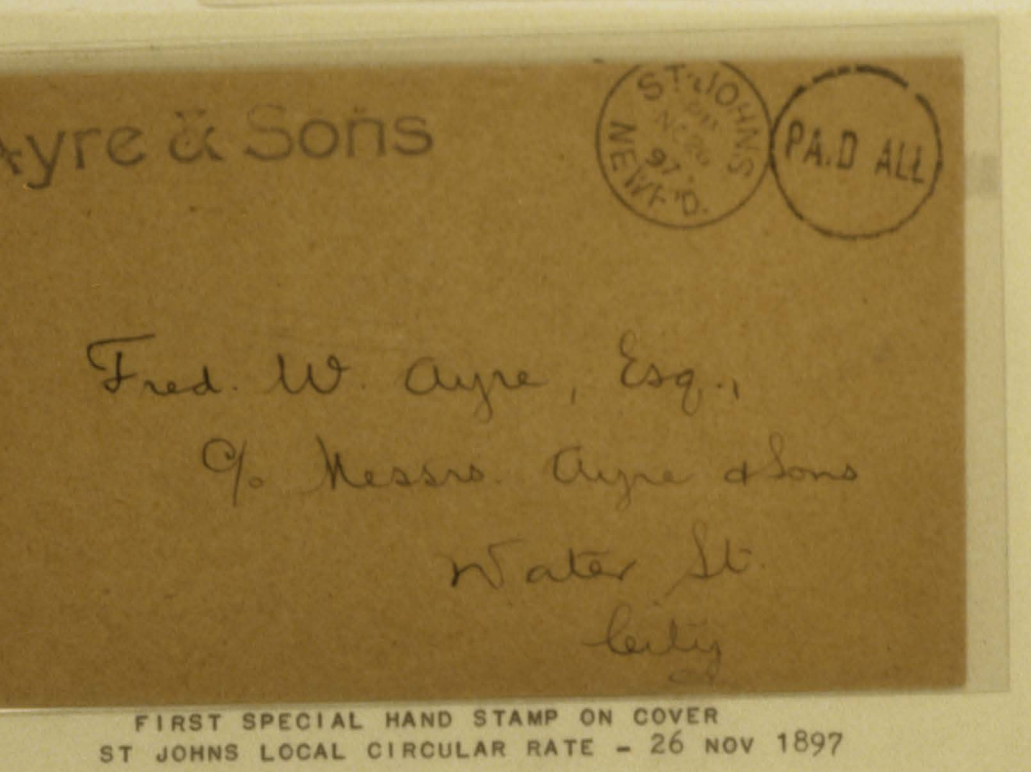 Ayre & Sons
ST. JOHNS
PM
NO 26
97
NEWF'D.
PAID ALL
Fred. W. Ayre, Esq.,
c/o Messrs. Ayre & Sons
Water St.
City
FIRST SPECIAL HAND STAMP ON COVER
ST JOHNS LOCAL CIRCULAR RATE – 26 NOV 1897